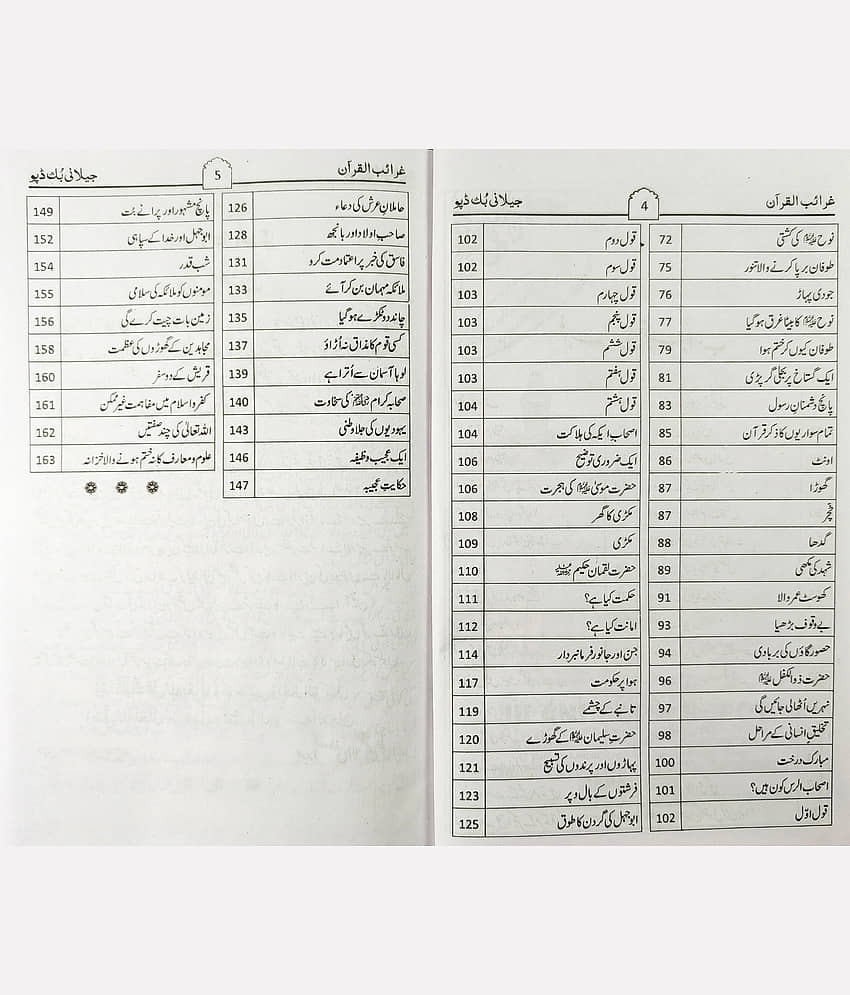 غرائب القرآن 4 جیلانی بُک ڈپو
نوح علیہ السلام کی کشتی 72
طوفان برپا کرنے والا تنور 75
جودی پہاڑ 76
نوح علیہ السلام کا بیٹا غرق ہو گیا 77
طوفان کیوں کر ختم ہوا 79
ایک گستاخ پر بجلی گر پڑی 81
پانچ دشمنانِ رسول 83
تمام سواریوں کا ذکر قرآن 85
اونٹ 86
گھوڑا 87
خچر 87
گدھا 88
شہد کی مکھی 89
کھوسٹ عمر والا 91
بے وقوف بڑھیا 93
حضور گاؤں کی بربادی 94
حضرت ذوالکفل علیہ السلام 96
نہریں اُٹھالی جائیں گی 97
تخلیقِ انسانی کے مراحل 98
مبارک درخت 100
اصحاب الرس کون ہیں؟ 101
قول اوّل 102
قول دوم 102
قول سوم 102
قول چہارم 103
قول پنجم 103
قول ششم 103
قول ہفتم 103
قول ہشتم 104
اصحاب ایکہ کی ہلاکت 104
ایک ضروری توضیح 106
حضرت موسیٰ علیہ السلام کی ہجرت 106
مکڑی کا گھر 108
مکڑی 109
حضرت لقمان حکیم 110
حکمت کیا ہے؟ 111
امانت کیا ہے؟ 112
جن اور جانور فرمانبردار 114
ہوا پر حکومت 117
تانبے کے چشمے 119
حضرت سلیمان علیہ السلام کے گھوڑے 120
پہاڑوں اور پرندوں کی تسبیح 121
فرشتوں کے بال و پر 123
ابو جہل کی گردن کا طوق 125
غرائب القرآن 5 جیلانی بُک ڈپو
حاملانِ عرش کی دعاء 126
صاحب اولاد اور بانجھ 128
فاسق کی خبر پر اعتماد مت کرو 131
ملائکہ مہمان بن کر آئے 133
چاند دو ٹکڑے ہو گیا 135
کسی قوم کا مذاق نہ اُڑاؤ 137
لوہا آسمان سے اُترا ہے 139
صحابہ کرام کی سخاوت 140
یہودیوں کی جلاوطنی 143
ایک عجیب وظیفہ 146
حکایتِ عجیبہ 147
پانچ مشہور اور پرانے بت 149
ابوجہل اور خدا کے سپاہی 152
شب قدر 154
مومنوں کو ملائکہ کی سلامی 155
زمین بات چیت کرے گی 156
مجاہدین کے گھوڑوں کی عظمت 158
قریش کے دو سفر 160
کفر و اسلام میں مفاہمت غیر ممکن 161
اللہ تعالیٰ کی چند صفتیں 162
علوم و معارف کا نہ ختم ہونے والا خزانہ 163